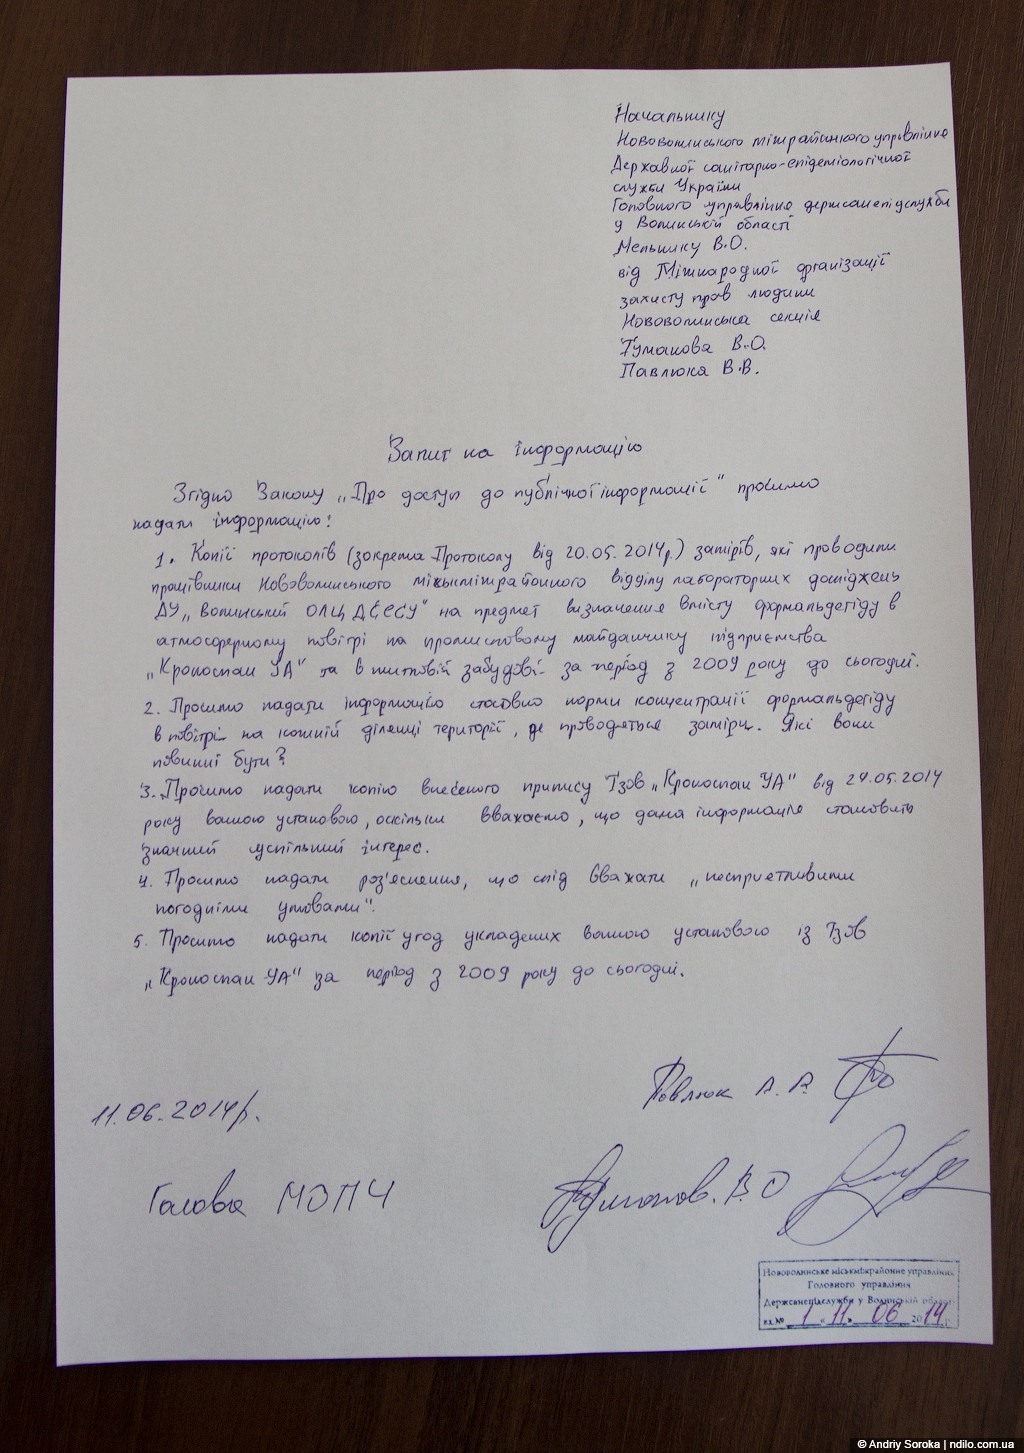 Начальнику
Нововолинського міжрайонного управління
Державної санітарно-епідеміологічної
служби України
Головного управління держсанепідслужби
у Волинській області
Мельнику В.О.
від Міжнародної організації
захисту прав людини
Нововолинська секція
Туманова В.О.
Павлюка В.В.
Запит на інформацію
Згідно Закону „Про доступ до публічної інформації" просимо
надати інформацію:
1. Копії протоколів (зокрема Протоколу від 20.05.2014р.) замірів, які проводили
працівники Нововолинського міськміжрайонного відділу лабораторних досліджень
ДУ „Волинський ОЛЦ ДСЕСУ" на предмет визначення вмісту формальдегіду в
атмосферному повітрі на промисловому майданчику підприємства
„Кроноспан УА" та в житловій забудові за період з 2009 року до сьогодні.
2. Просимо надати інформацію стосовно норми концентрації формальдегіду
в повітрі на кожній ділянці території, де проводяться заміри. Які вони
повинні бути?
3. Просимо надати копію внесеного припису ТзОВ „Кроноспан УА" від 24.05.2014
року вашою установою, оскільки вважаємо, що дана інформація становить
значний суспільний інтерес.
4. Просимо надати роз'яснення, що слід вважати „несприятливими
погодніми умовами".
5. Просимо надати копії угод укладених вашою установою із ТзОВ
„Кроноспан УА" за період з 2009 року до сьогодні.
Павлюк
11.06.2014р.
Голова МОПЧ
Туманов. В. О
Нововолинське міськміжрайонне управління
Головного управління
Держсанепідслужби у Волинській області
вх.№ 1 « 11 » 06 2014 г.
© Andriy Soroka | ndilo.com.ua